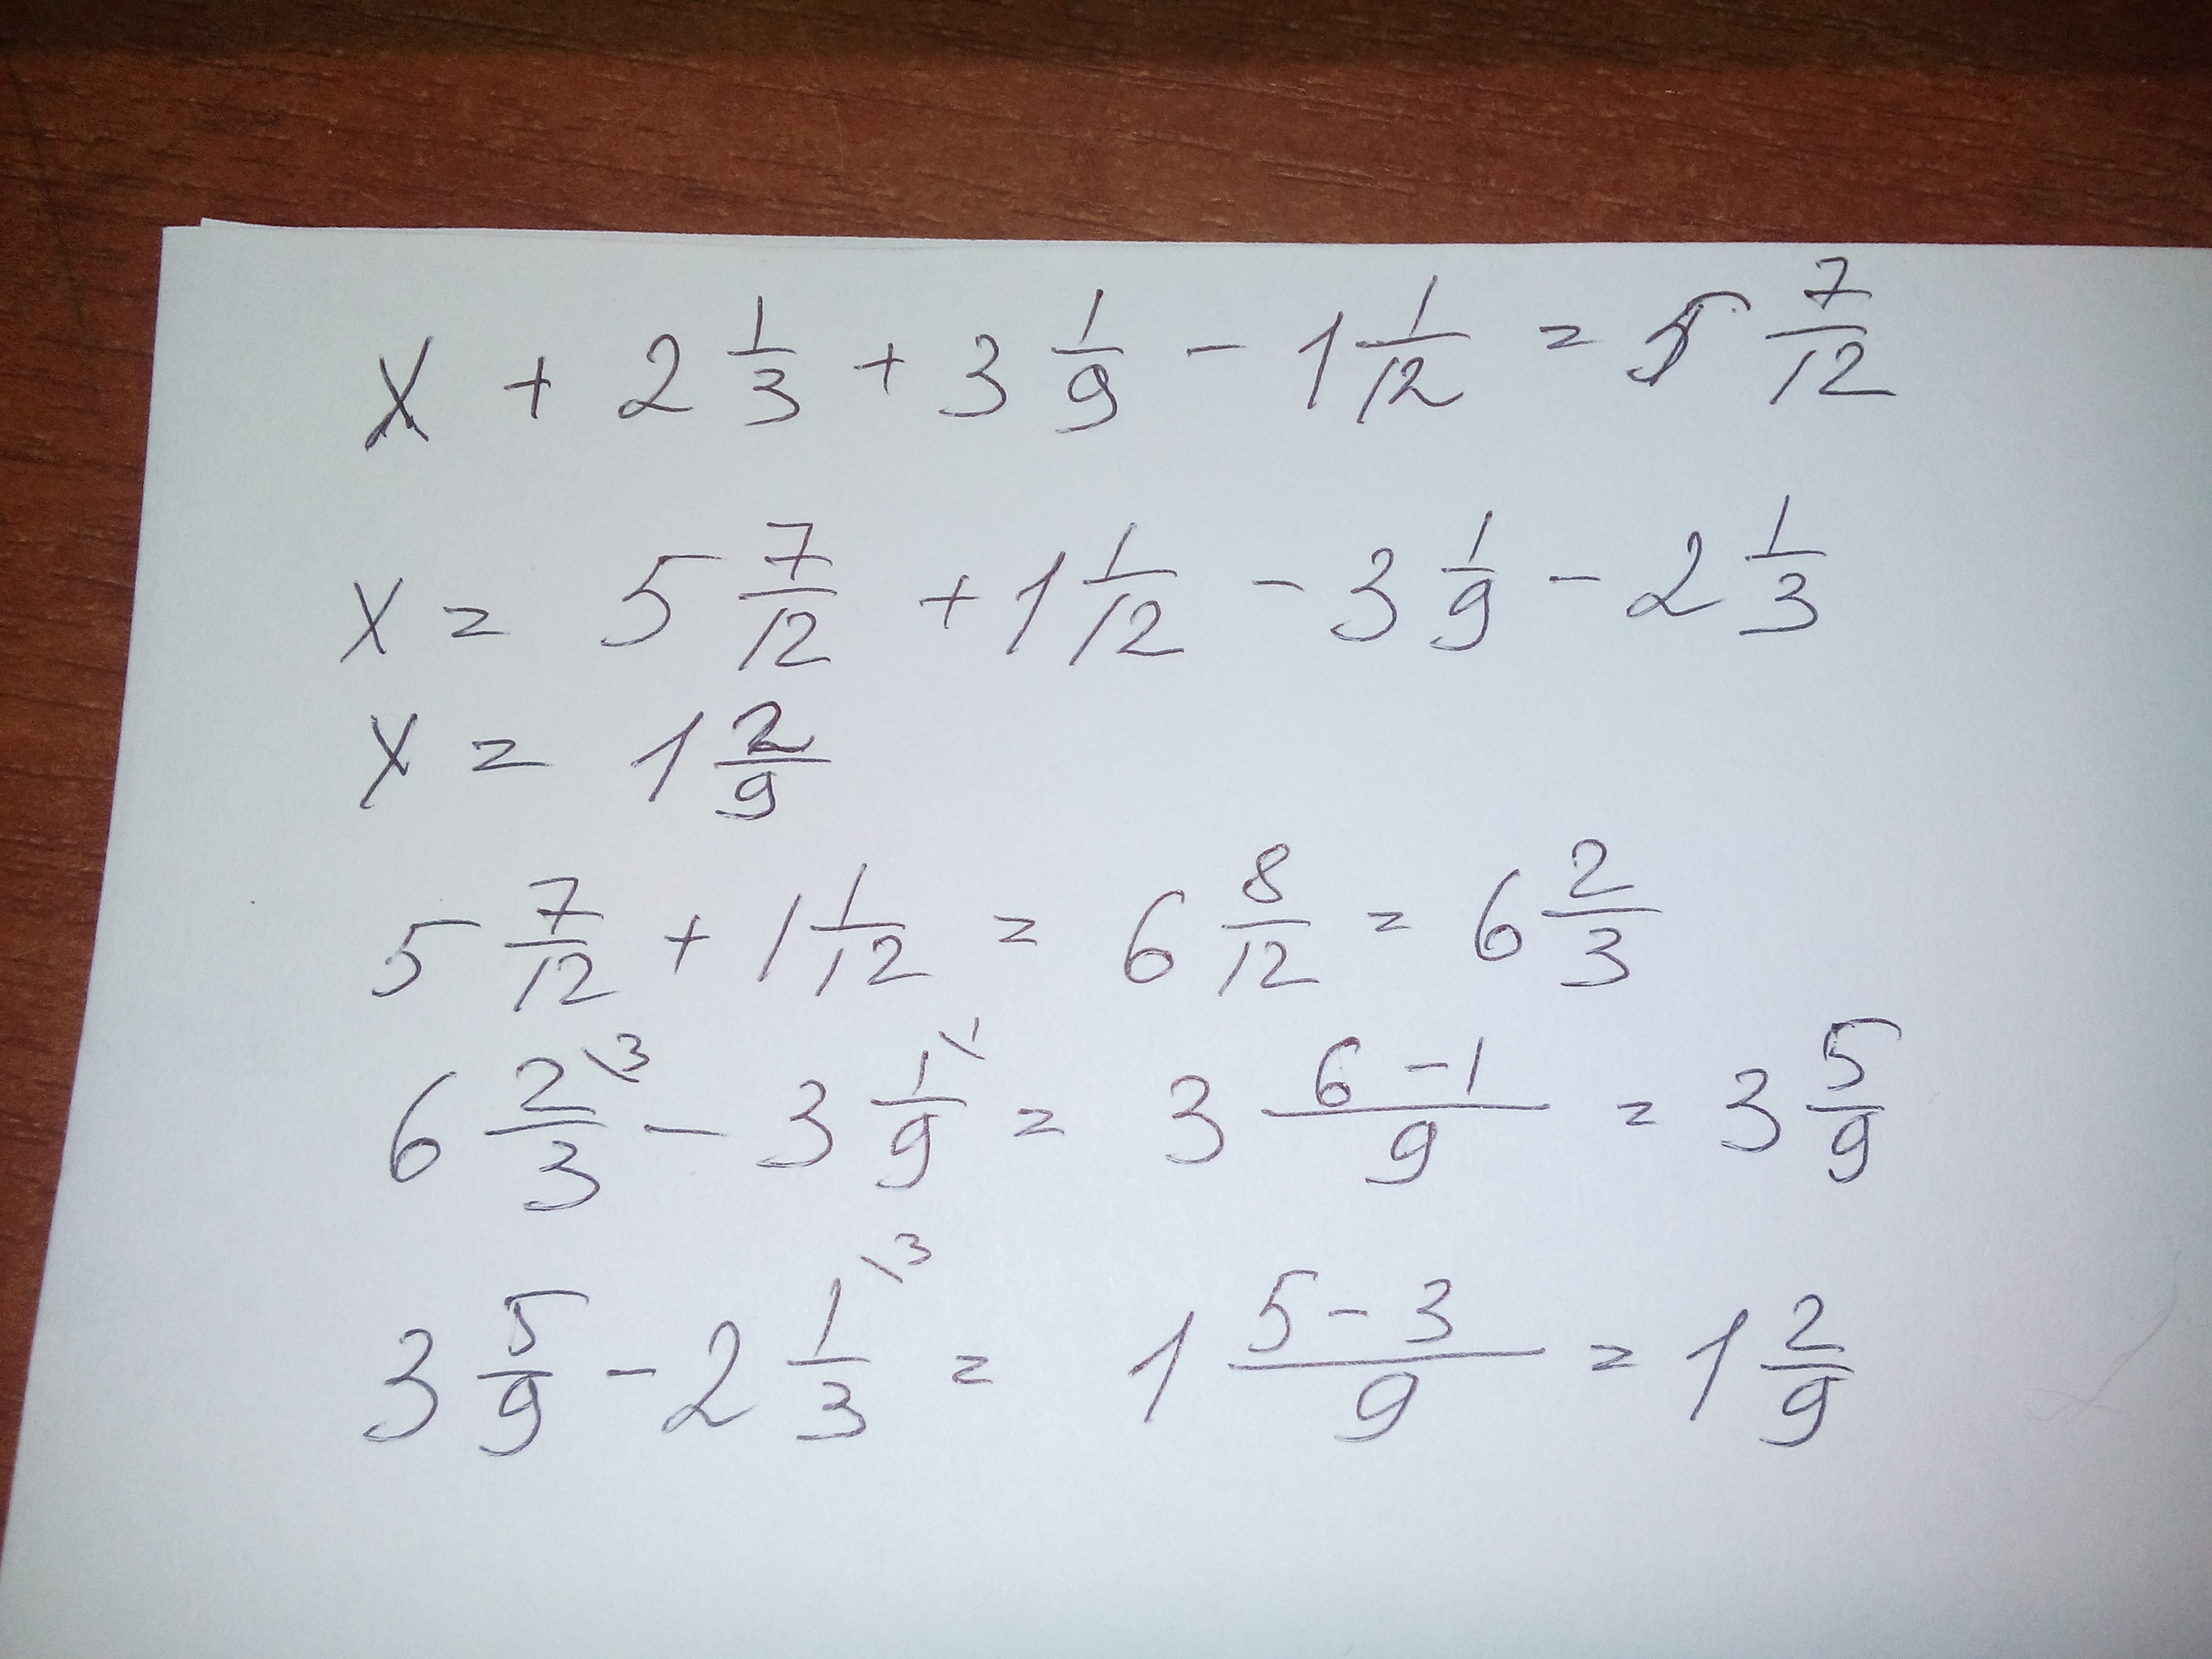 x + 2 1/3 + 3 1/9 - 1 1/12 = 5 7/12
x = 5 7/12 + 1 1/12 - 3 1/9 - 2 1/3
x = 1 2/9
5 7/12 + 1 1/12 = 6 8/12 = 6 2/3
6 2\3/3 - 3 1\1/9 = 3 6-1/9 = 3 5/9
3 5/9 - 2 1\3/3 = 1 5-3/9 = 1 2/9